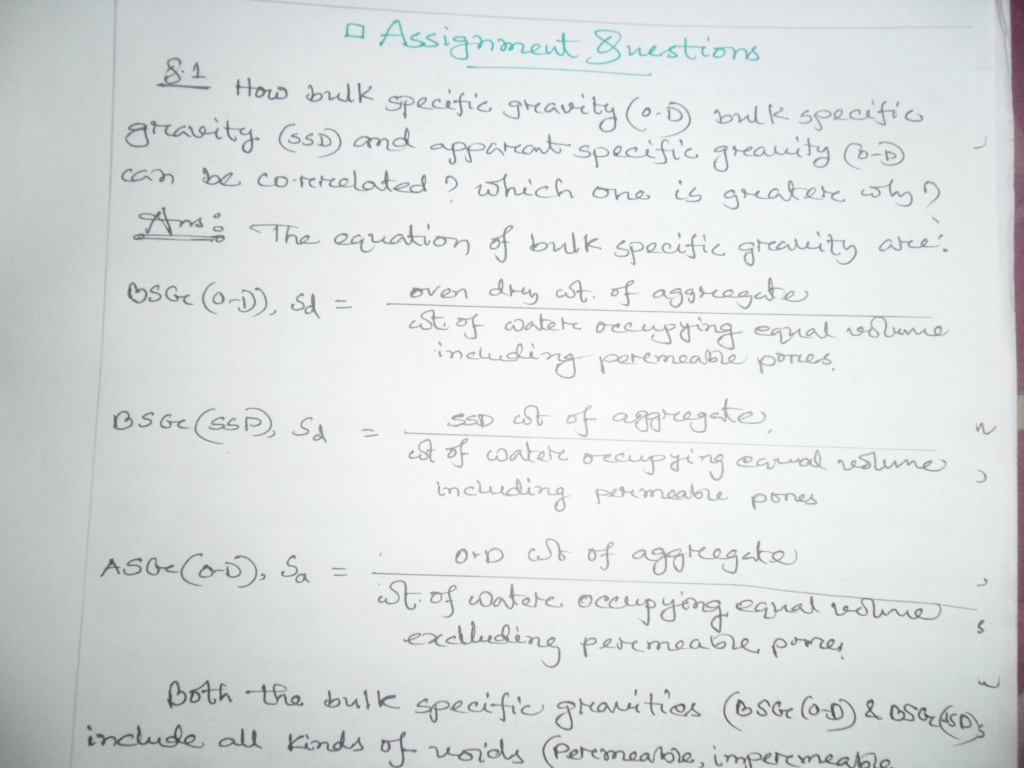 □ Assignment Questions
Q.1 How bulk specific gravity (O-D) bulk specific
gravity (SSD) and apparent specific gravity (O-D)
can be co-rrelated? which one is greater why?
Ans: The equation of bulk specific gravity are:
BSG (O-D), Sd = oven dry wt. of aggregate
wt. of water occupying equal volume
including permeable pores.
BSG (SSD), Sd = SSD wt of aggregate.
wt of water occupying equal volume
including permeable pores
ASG (O-D), Sa = O-D wt of aggregate
wt. of water occupying equal volume
excluding permeable pores
Both the bulk specific gravities (BSG (O-D) & BSG (SSD)s
include all kinds of voids (Permeable, impermeable